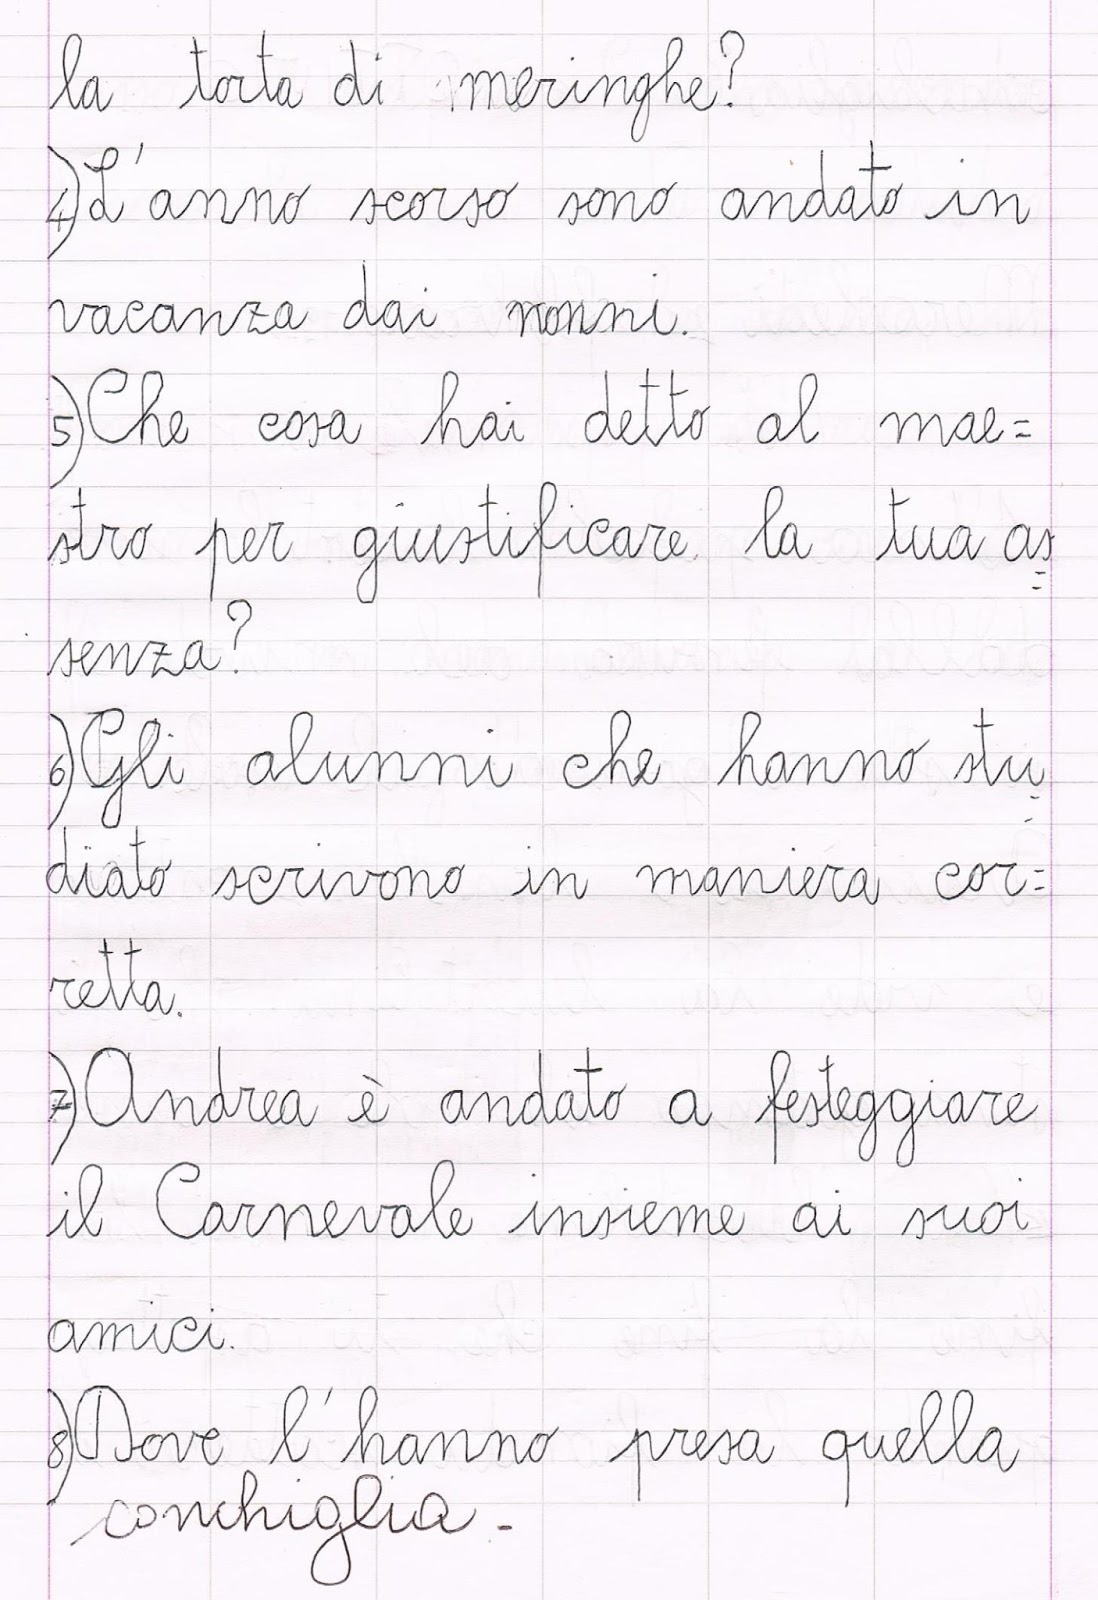 la torta di meringhe?
4) L'anno scorso sono andato in
vacanza dai nonni.
5) Che cosa hai detto al mae=
stro per giustificare la tua as=
senza?
6) Gli alunni che hanno stu=
diato scrivono in maniera cor=
retta.
7) Andrea è andato a festeggiare
il Carnevale insieme ai suoi
amici.
8) Dove l'hanno presa quella
conchiglia.